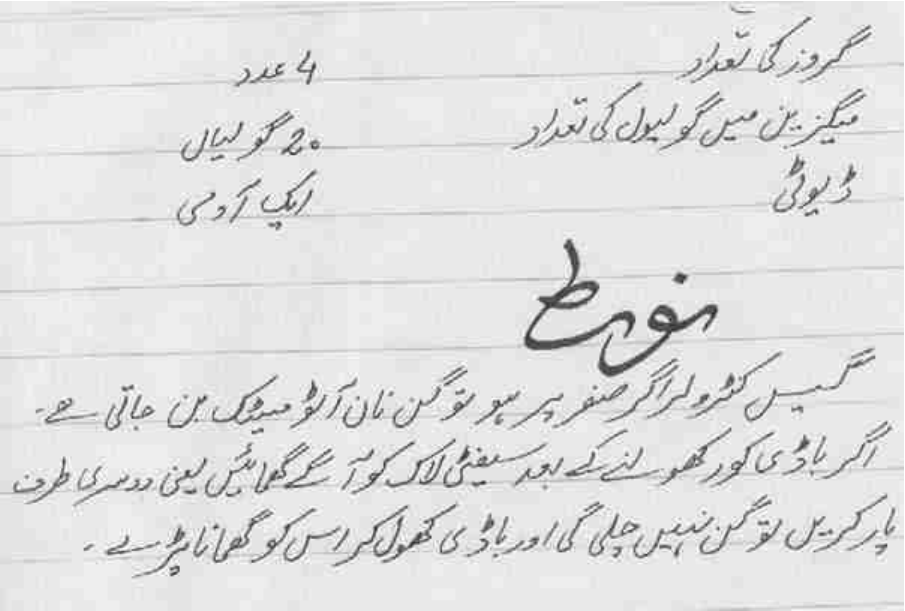 گروز کی تعداد 4 عدد
میگزین میں گولیوں کی تعداد 20 گولیاں
ڈیوٹی ایک آدمی
نوٹ
گیس کنٹرولر اگر صفر پر ہو تو گن نان آٹومیٹک بن جاتی ہے۔
اگر باڈی کور کھولنے کے بعد سیفٹی لاک کو آگے گھمائیں یعنی دوسری طرف
پار کریں تو گن نہیں چلی گی اور باڈی کھول کر اس کو گھمانا پڑے۔